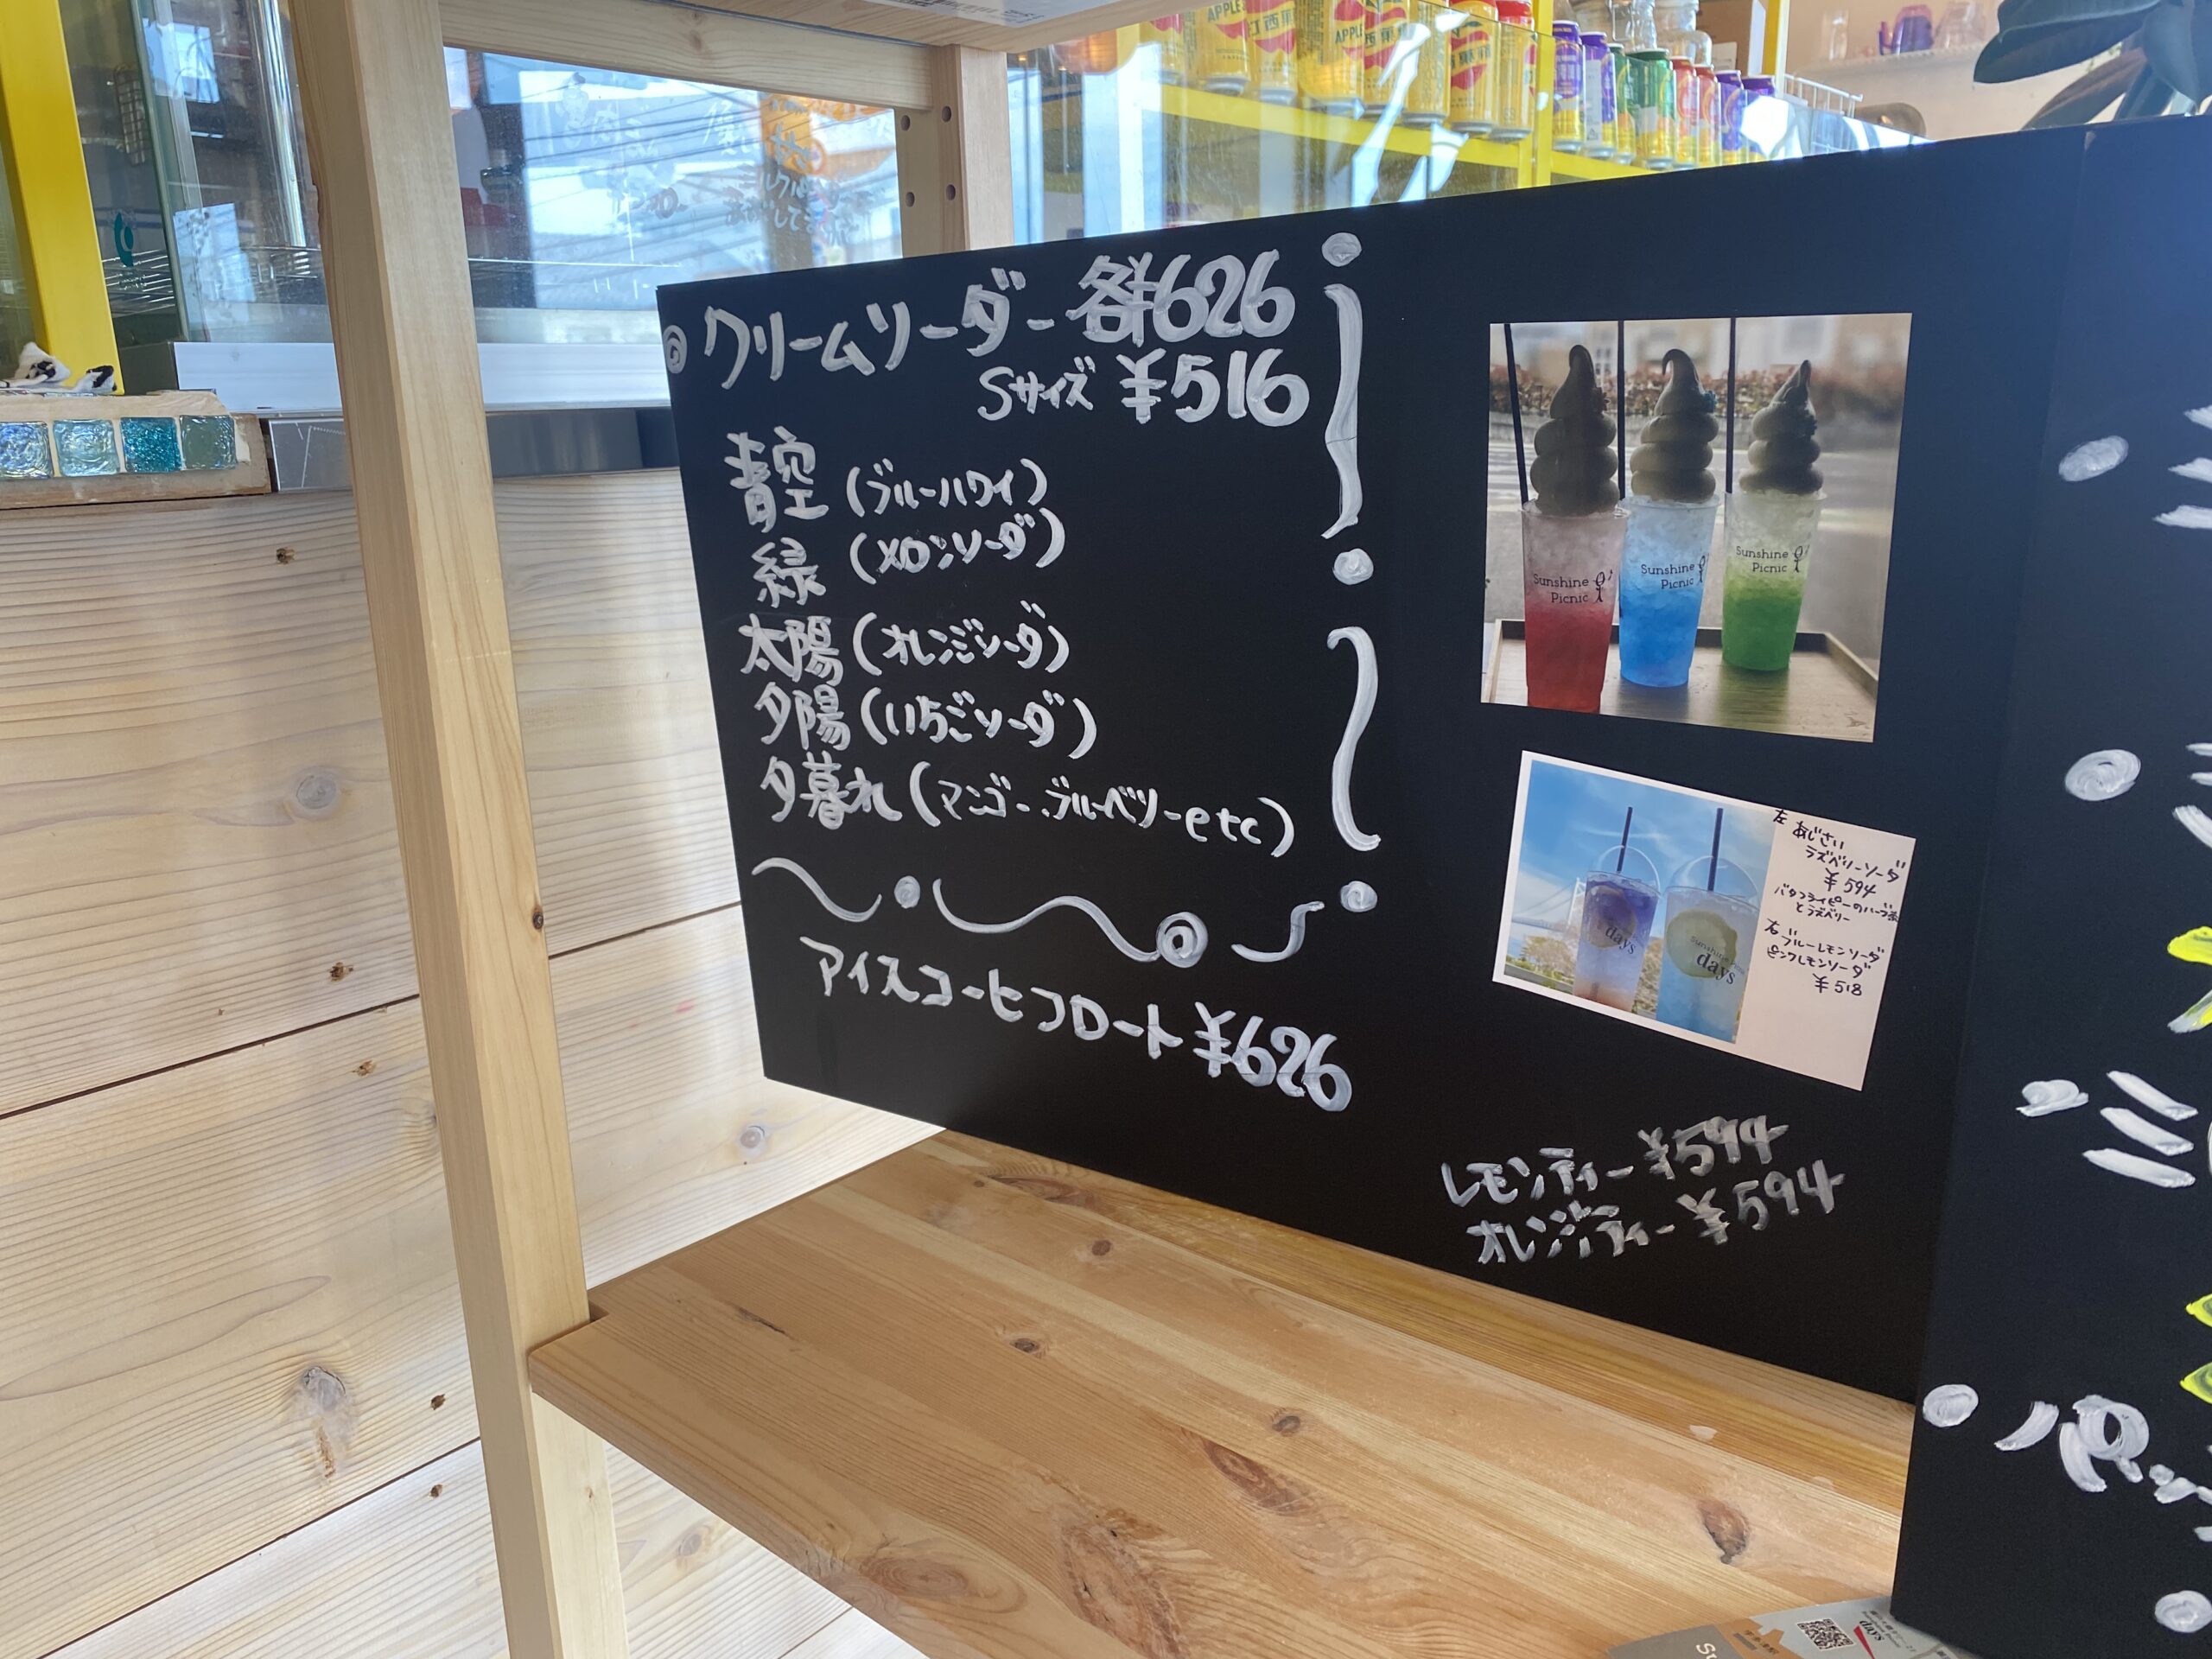 クリームソーダー 各¥626
Sサイズ ¥516
青空 (ブルーハワイ)
緑 (メロンソーダ)
太陽 (オレンジソーダ)
夕陽 (いちごソーダ)
夕暮れ (マンゴー、ブルーベリーetc)
アイスコーヒフロート ¥626
Sunshine Picnic
Sunshine Picnic
Sunshine Picnic
days
days
左 あじさい
ラズベリーソーダ
¥594
バタフライピーのハーブ茶
とラズベリー
右 ブルーレモンソーダ
ピンクレモンソーダ
¥518
レモンティー ¥594
オレンジティー ¥594
APPLE
APPLE
days